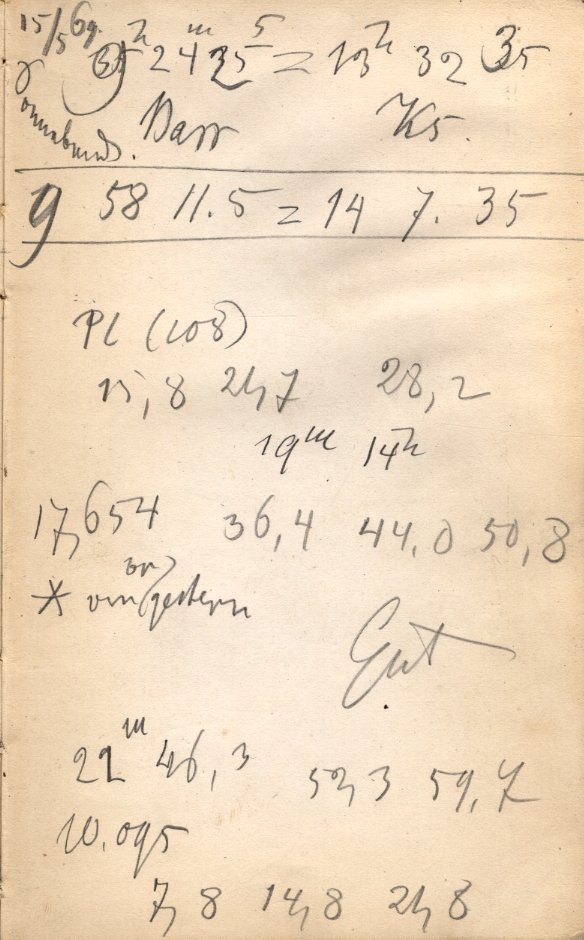 15/5 69.
9h 24m 35s = 13h 32 35
Sonnabend.
Darr K5.
9 58 11.5 = 14 7. 35
Pl (108)
15,8 21,7 28,2
19m 14h
17,654 36,4 44,0 50,8
* von gestern
Gut
22m 46,3 53,3 59,7
10.095
7,8 14,8 21,8